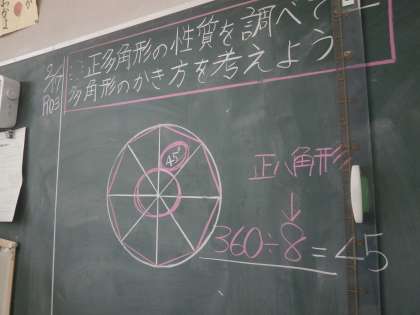 正多角形の性質を調べて
多角形のかき方を考えよう
45°
正八角形
360÷8=45